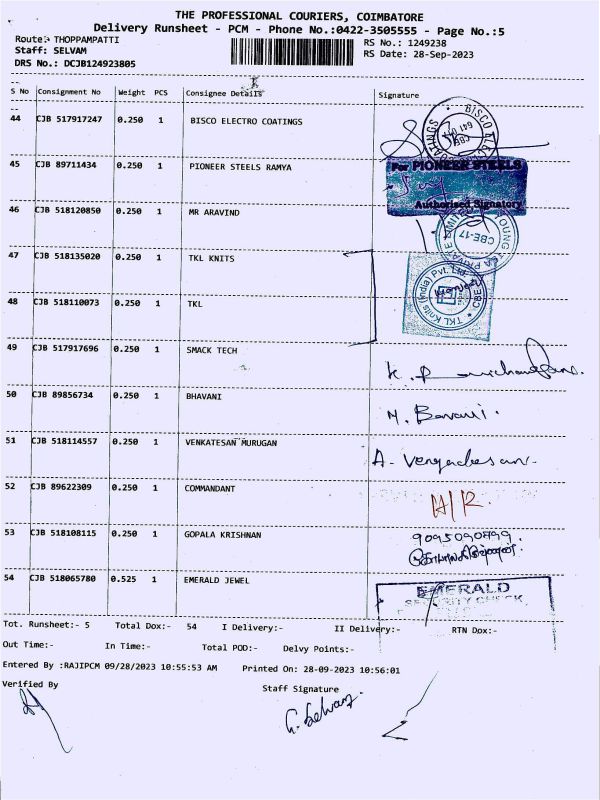 THE PROFESSIONAL COURIERS, COIMBATORE
Delivery Runsheet - PCM - Phone No.:0422-3505555 - Page No.:5
Route: THOPPAMPATTI RS No.: 1249238
Staff: SELVAM RS Date: 28-Sep-2023
DRS No.: DCJB124923805
S No Consignment No Weight PCS Consignee Details Signature
44 CJB 517917247 0.250 1 BISCO ELECTRO COATINGS
BISCO
COATINGS
CBE
641
45 CJB 89711434 0.250 1 PIONEER STEELS RAMYA
For PIONEER STEELS
Authorised Signatory
46 CJB 518120850 0.250 1 MR ARAVIND
YOUNG
CBE-17
47 CJB 518135020 0.250 1 TKL KNITS
TKL Knits (India) Pvt. Ltd.
48 CJB 518110073 0.250 1 TKL
49 CJB 517917696 0.250 1 SMACK TECH
50 CJB 89856734 0.250 1 BHAVANI M. Bavani.
51 CJB 518114557 0.250 1 VENKATESAN MURUGAN A. Vengadesan
52 CJB 89622309 0.250 1 COMMANDANT H/R.
53 CJB 518108115 0.250 1 GOPALA KRISHNAN 9095090899.
54 CJB 518065780 0.525 1 EMERALD JEWEL EMERALD
SECURITY CHECK
Tot. Runsheet:- 5 Total Dox:- 54 I Delivery:- II Delivery:- RTN Dox:-
Out Time:- In Time:- Total POD:- Delvy Points:-
Entered By :RAJIPCM 09/28/2023 10:55:53 AM Printed On: 28-09-2023 10:56:01
Verified By Staff Signature
G. Selvam